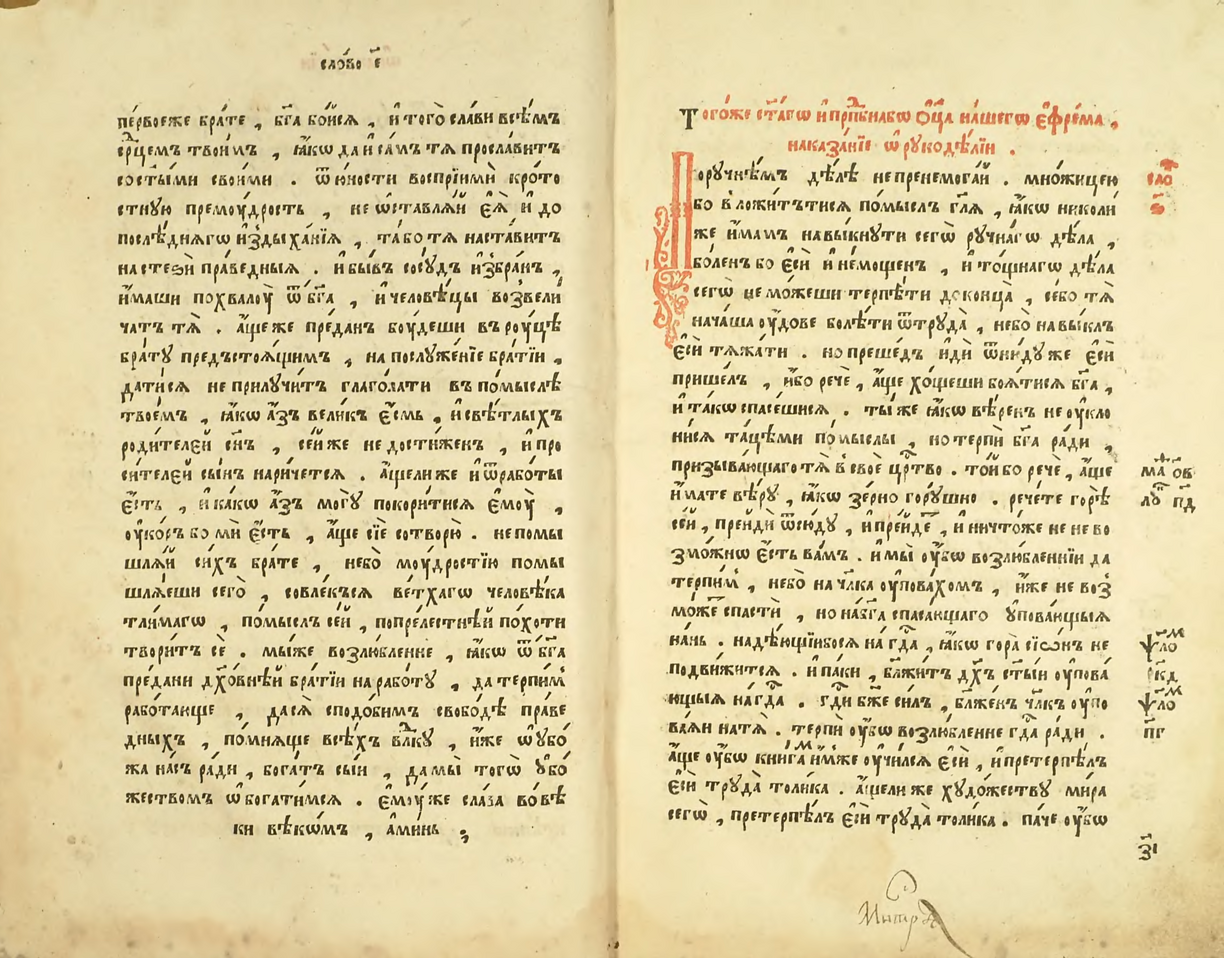 сло́во є҃
пе́рвоеже бра́те , бг҃а бо́йсѧ , и҆ того̀ сла́ви всѣ́мъ
срⷣцемъ твои́мъ , ꙗ҆́кѡ да и҆ са́мъ тѧ просла́витъ
состы́ми свои́ми . ѿ ю҆́ности воспрїимѝ кро́то
стную премоу́дрость , не ѡ҆ставлѧ́й є҆ѧ̀ и҆ до
послѣ́днѧгѡ и҆здыха́нїѧ , та́ бо тѧ наста́витъ
на стезѝ пра́ведныѧ . и҆ бы́въ сосу́дъ и҆збра́нъ ,
и҆́маши похвалоу̀ ѿ бг҃а , и҆ человѣ́цы возвели
ча́тъ тѧ̀ . а҆́ще же пре́данъ боу́деши въ роу́цѣ
бра́ту предъстоѧ́щимъ , на послуже́нїе бра́тїи ,
да ти́сѧ не прилучи́тъ глаго́лати въ по́мыслѣ
твое́мъ , ꙗ҆́кѡ а҆́зъ вели́къ є҆́смь , и҆ свѣ́тлыхъ
роди́телєй сн҃ъ , се́й же не дости́женъ , и҆ про
си́телєй сы́нъ нариче́тсѧ . а҆́щели же и҆ ѿ рабо́ты
є҆́сть , и҆ ка́кѡ а҆́зъ могу̀ покори́тисѧ є҆моу̀ ,
оу҆ко́ръ бо мѝ є҆́сть , а҆́ще сїѐ сотворю̀ . не помы
шлѧ́й си́хъ бра́те , небо̀ моу́дростїю помы
шлѧ́еши сего̀ , совлеке́сѧ ве́тхагѡ человѣ́ка
тлѝмагѡ , по́мыслъ се́й , по преле́стнѣй по́хоти
твори́тъ се . мы́же возлю́бленне , ꙗ҆́кѡ ѿ бг҃а
пре́дани дх҃о́внѣй бра́тїи на рабо́ту , да терпи́м
рабо́тающе , да сѧ̀ сподо́бимъ свобо́дѣ пра́ве
дныхъ , по́мнѧще всѣ́хъ влⷣку , и҆́же ѡ҆убо́
жа на́съ ра́ди , бога́тъ сы́и , да мы̀ того̀ ѹ҆бо́
жествомъ ѡ҆богати́мсѧ . є҆моу́же сла́ва во вѣ́
ки вѣкѡ́мъ , а҆ми́нь ,
Того́же ст҃а́гѡ и҆ прпⷣбнагѡ ѻ҆ц҃а̀ на́шегѡ є҆фре́ма ,
наказа́нїе ѡ҆ рукодѣ́лїи .
По ручнѣ́мъ дѣ́лѣ не пренемога́й . мно́жицею
бо вложи́тъ ти́сѧ по́мыслъ гл҃ѧ , ꙗ҆́кѡ николи́
же и҆́мамъ навы́кнути сегѡ̀ ру́чнагѡ дѣ́ла ,
бо́ленъ бо є҆сѝ и҆ не́мощенъ , и҆ то́щнагѡ дѣ́ла
сегѡ̀ не мо́жеши терпѣ́ти до конца̀ , се́бо тѧ̀
нача́ша оу҆́дове болѣ́ти ѿ труда̀ , небо̀ навы́клъ
є҆сѝ тѧжа́ти . но прешéдъ и҆дѝ ѿню́ду же є҆сѝ
прише́лъ , и҆́бо речѐ , а҆́ще хо́щеши боѧ́тисѧ бг҃а ,
и҆ та́кѡ спасе́шисѧ . ты́ же ꙗ҆́кѡ вѣ́ренъ не оу҆кло
ни́сѧ тацѣ́ми по́мыслы , но терпѝ бг҃а ра́ди ,
призыва́ющаго тѧ̀ в̾ своѐ црⷭ҇тво . то́й бо речѐ , а҆́ще
и҆́мате вѣ́ру , ꙗ҆́кѡ зе́рно гору́шно . рече́те горѣ̀
се́й , прейдѝ ѿсю́ду , и҆ пре́йде , и҆ ничто́же не не во
змо́жнѡ є҆́сть ва́мъ . и҆ мы̀ оу҆́бѡ возлю́бленнїи да
терпи́м , небо̀ на чл҃ка оу҆пова́хомъ , и҆́же не воз
мо́же спастѝ , но на бг҃а спаса́ющаго ѹ҆пова́ющыѧ
на́нь . надѣ́ющїибосѧ на гдⷭ҇а , ꙗ҆́кѡ гора̀ сїѡ́нъ не
подви́житсѧ . и҆ па́ки , бл҃жи́тъ дх҃ъ ст҃ы́и оу҆пова́
ющыѧ на гдⷭ҇а . гдⷭ҇и бж҃е си́лъ , бл҃же́нъ чл҃къ оу҆по
ва́ѧи на тѧ̀ . терпѝ оу҆́бѡ возлю́бленне гдⷭ҇а ра́ди .
а҆́ще оу҆́бѡ кни́гам и҆́мже оу҆чи́лсѧ є҆сѝ , и҆ претерпѣ́лъ
є҆сѝ труда̀ то́лика . а҆́щели же худо́жеству ми́ра
сегѡ̀ , претерпѣ́лъ є҆сѝ труда̀ то́лика . па́че оу҆́бѡ
сло
ѕ҃
маⷴ ѳ ов
лоⷹ пд
ѱаⷧ҇ло
рк҃д
ѱаⷧ҇ло
пг
з҃ı